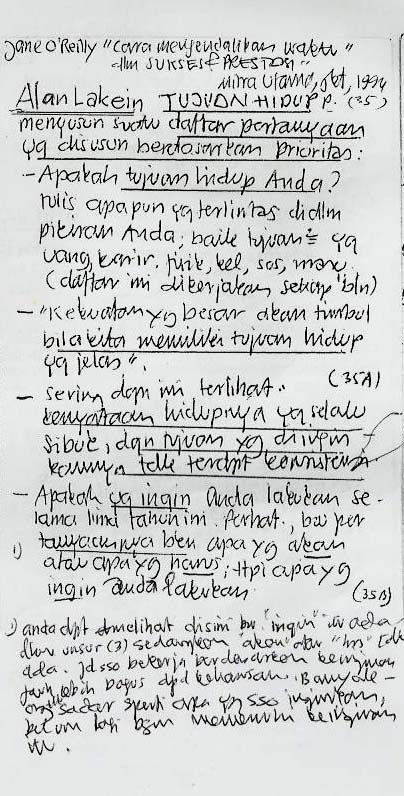 Jane O'Reilly "Cara mengendalikan waktu"
dlm SUKSES & PRESTASI
Mitra Utama, Okt, 1994
Alan Lakein TUJUAN HIDUP P. (35)
menyusun suatu daftar pertanyaan
yg disusun berdasarkan prioritas:
- Apakah tujuan hidup Anda?
tulis apapun yg terlintas didlm
pikiran Anda; baik tujuan² yg
uang, karir, fisik, kel, sos,
(daftar ini dikerjakan setiap bln)
- "Kekuatan yg besar akan timbul
bila kita memiliki tujuan hidup
yg jelas".
(35A)
- sering dam ini terlihat.
kenyataan hidupnya yg selalu
sibuk, dan tujuan yg diingin-
kannya tdk terdpt konsistensi
- Apakah yg ingin Anda lakukan se-
lama lima tahun ini. Perhat., bw per
tanyaannya bkn apa yg akan
1) atau apa yg harus; ttpi apa yg
ingin anda lakukan.
(35B)
1) anda dpt melihat disini bw "ingin" itu ada
unsur (3) sedangkan "akan" atau "hrs" tdk
ada. Jd sso bekerja berdasarkan keinginan
jauh lebih bagus dpd keharusan. Banyak
org sadar apa yg sso inginkan,
belum lagi bgm memenuhi keinginan
itu.